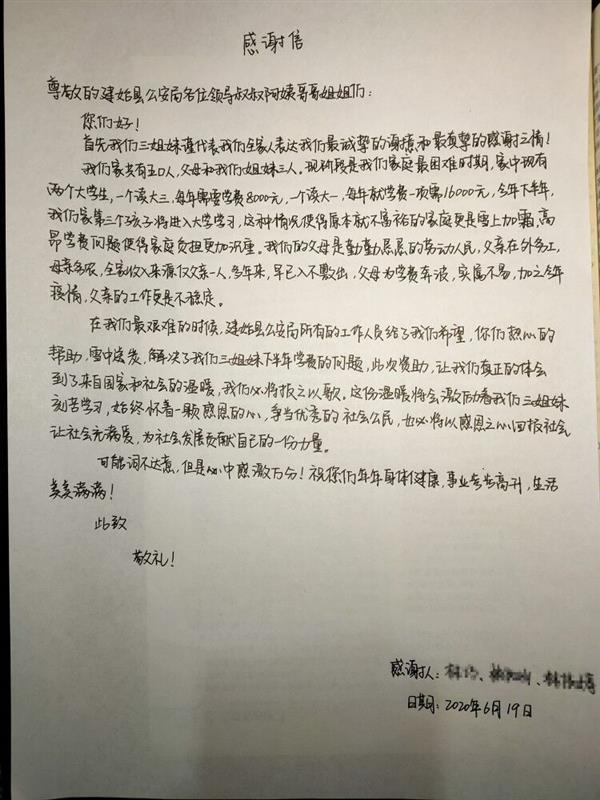 感谢信
尊敬的建始县公安局各位领导叔叔阿姨哥哥姐姐们：
您们好！
首先我们三姐妹谨代表我们全家人表达我们最诚挚的谢意和最真挚的感谢之情！
我们家共有五口人，父母和我们姐妹三人。现阶段是我们家庭最困难时期，家中现有
两个大学生，一个读大三，每年需要学费8000元，一个读大一，每年就学费一项需16000元，今年下半年，
我们家第三个孩子将进入大学学习，这种情况使得原本就不富裕的家庭更是雪上加霜，高
昂学费问题使得家庭负担更加沉重。我们的父母是勤勤恳恳的劳动人民，父亲在外务工，
母亲务农，全家收入来源仅父亲一人，多年来，早已入不敷出，父母为学费奔波，实属不易，加之今年
疫情，父亲的工作更是不稳定。
在我们最艰难的时候，建始县公安局所有的工作人员给了我们希望，你们热心的
帮助，雪中送炭，解决了我们三姐妹下半年学费的问题，此次资助，让我们真正的体会
到了来自国家和社会的温暖，我们必将报之以歌。这份温暖将会激励着我们三姐妹
刻苦学习，始终怀着一颗感恩的心，争当优秀的社会公民，也必将以感恩之心回报社会
让社会充满爱，为社会发展贡献自己的一份力量。
可能词不达意，但是心中感激万分！祝您们年年身体健康，事业步步高升，生活
美美满满！
此致
敬礼！
感谢人：
日期：2020年6月19日